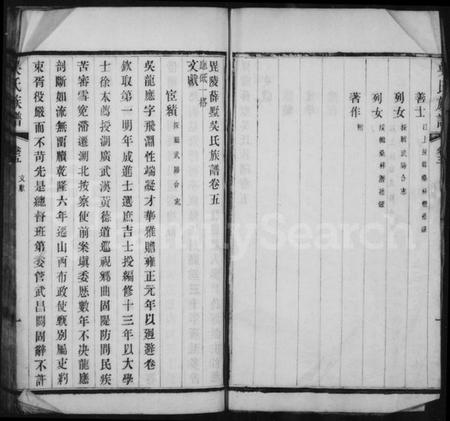 善士
列女
列女
著作 附
毘陵薛墅吳氏族譜卷五
文獻
宦績
吳龍應字飛淵性端凝才華雅贍雍正元年以迴避卷
欽取第一明年成進士選庶吉士授編修十三年以大學
士徐本薦授湖廣武漢黃德道巡視鄉曲固隄防問民疾
苦審雪冤滯遷湖北按察使前案塡委歷數年不決龍應
剖斷如流無留牘乾隆六年遷山西布政使甄別屬吏約
束胥役嚴而不苛先是總督班第委管武昌關固辭不許
吳氏族譜 卷五 文獻
FamilySearch